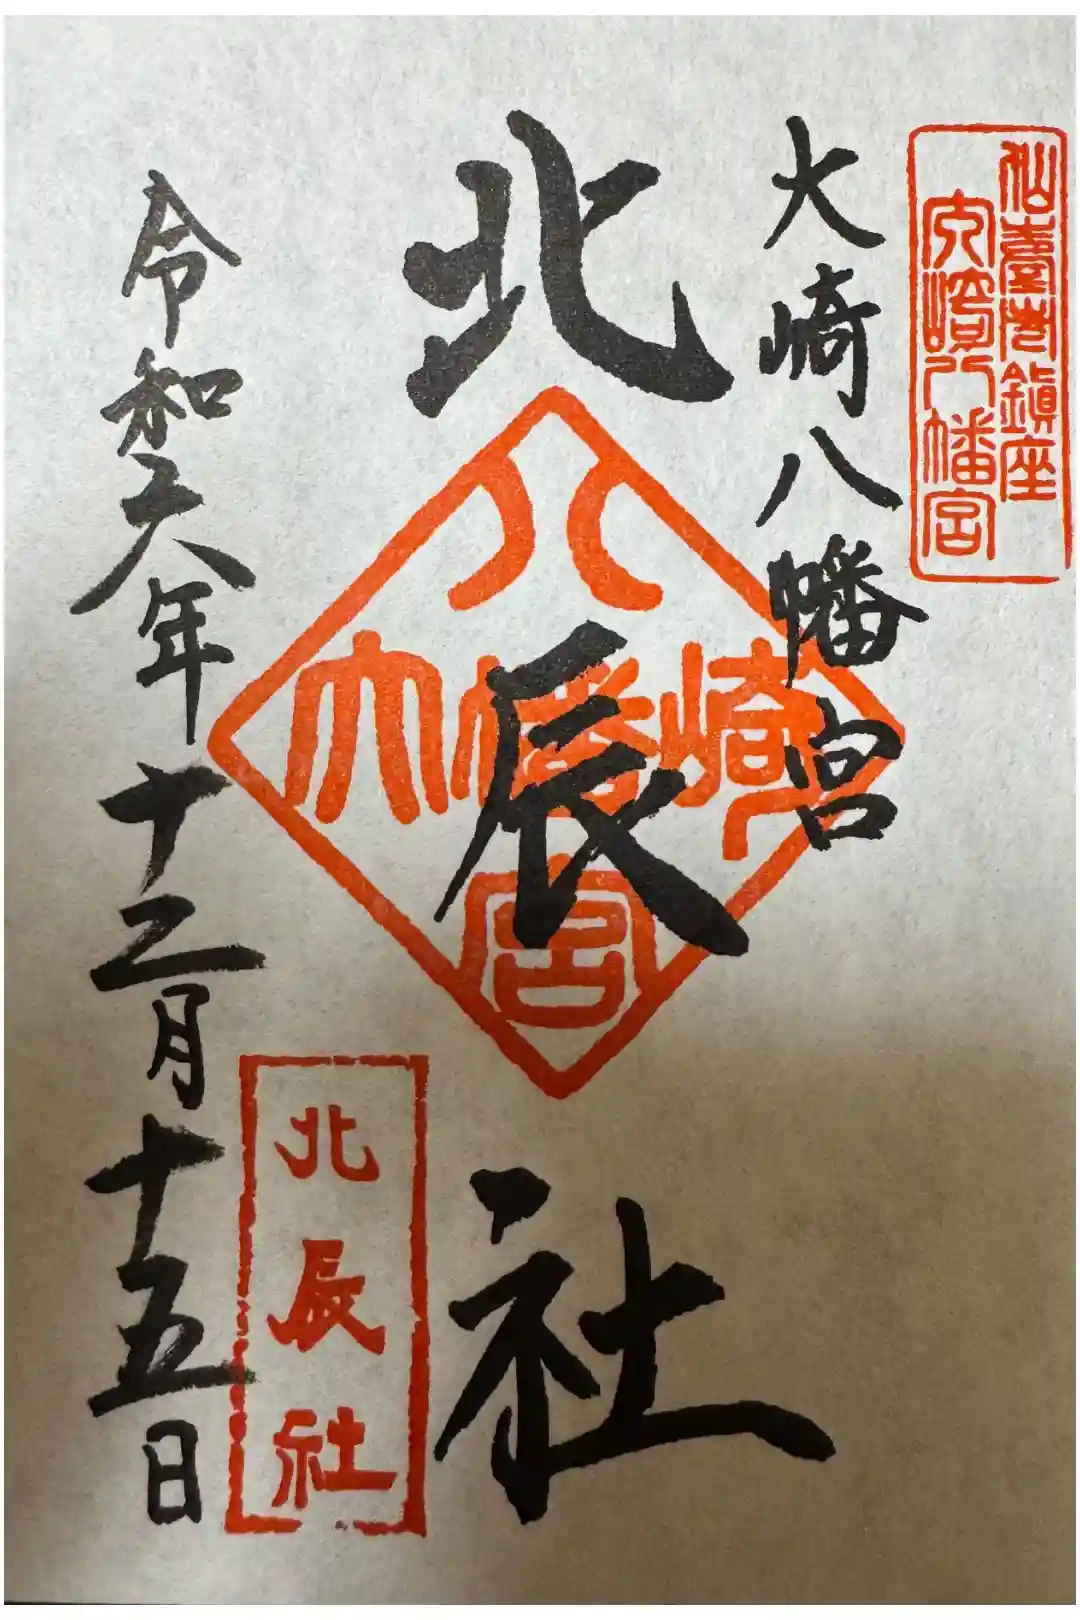 仙臺市鎮座
大崎八幡宮
大崎八幡宮
北辰社
大崎八幡宮
北辰社
令和六年十二月十五日